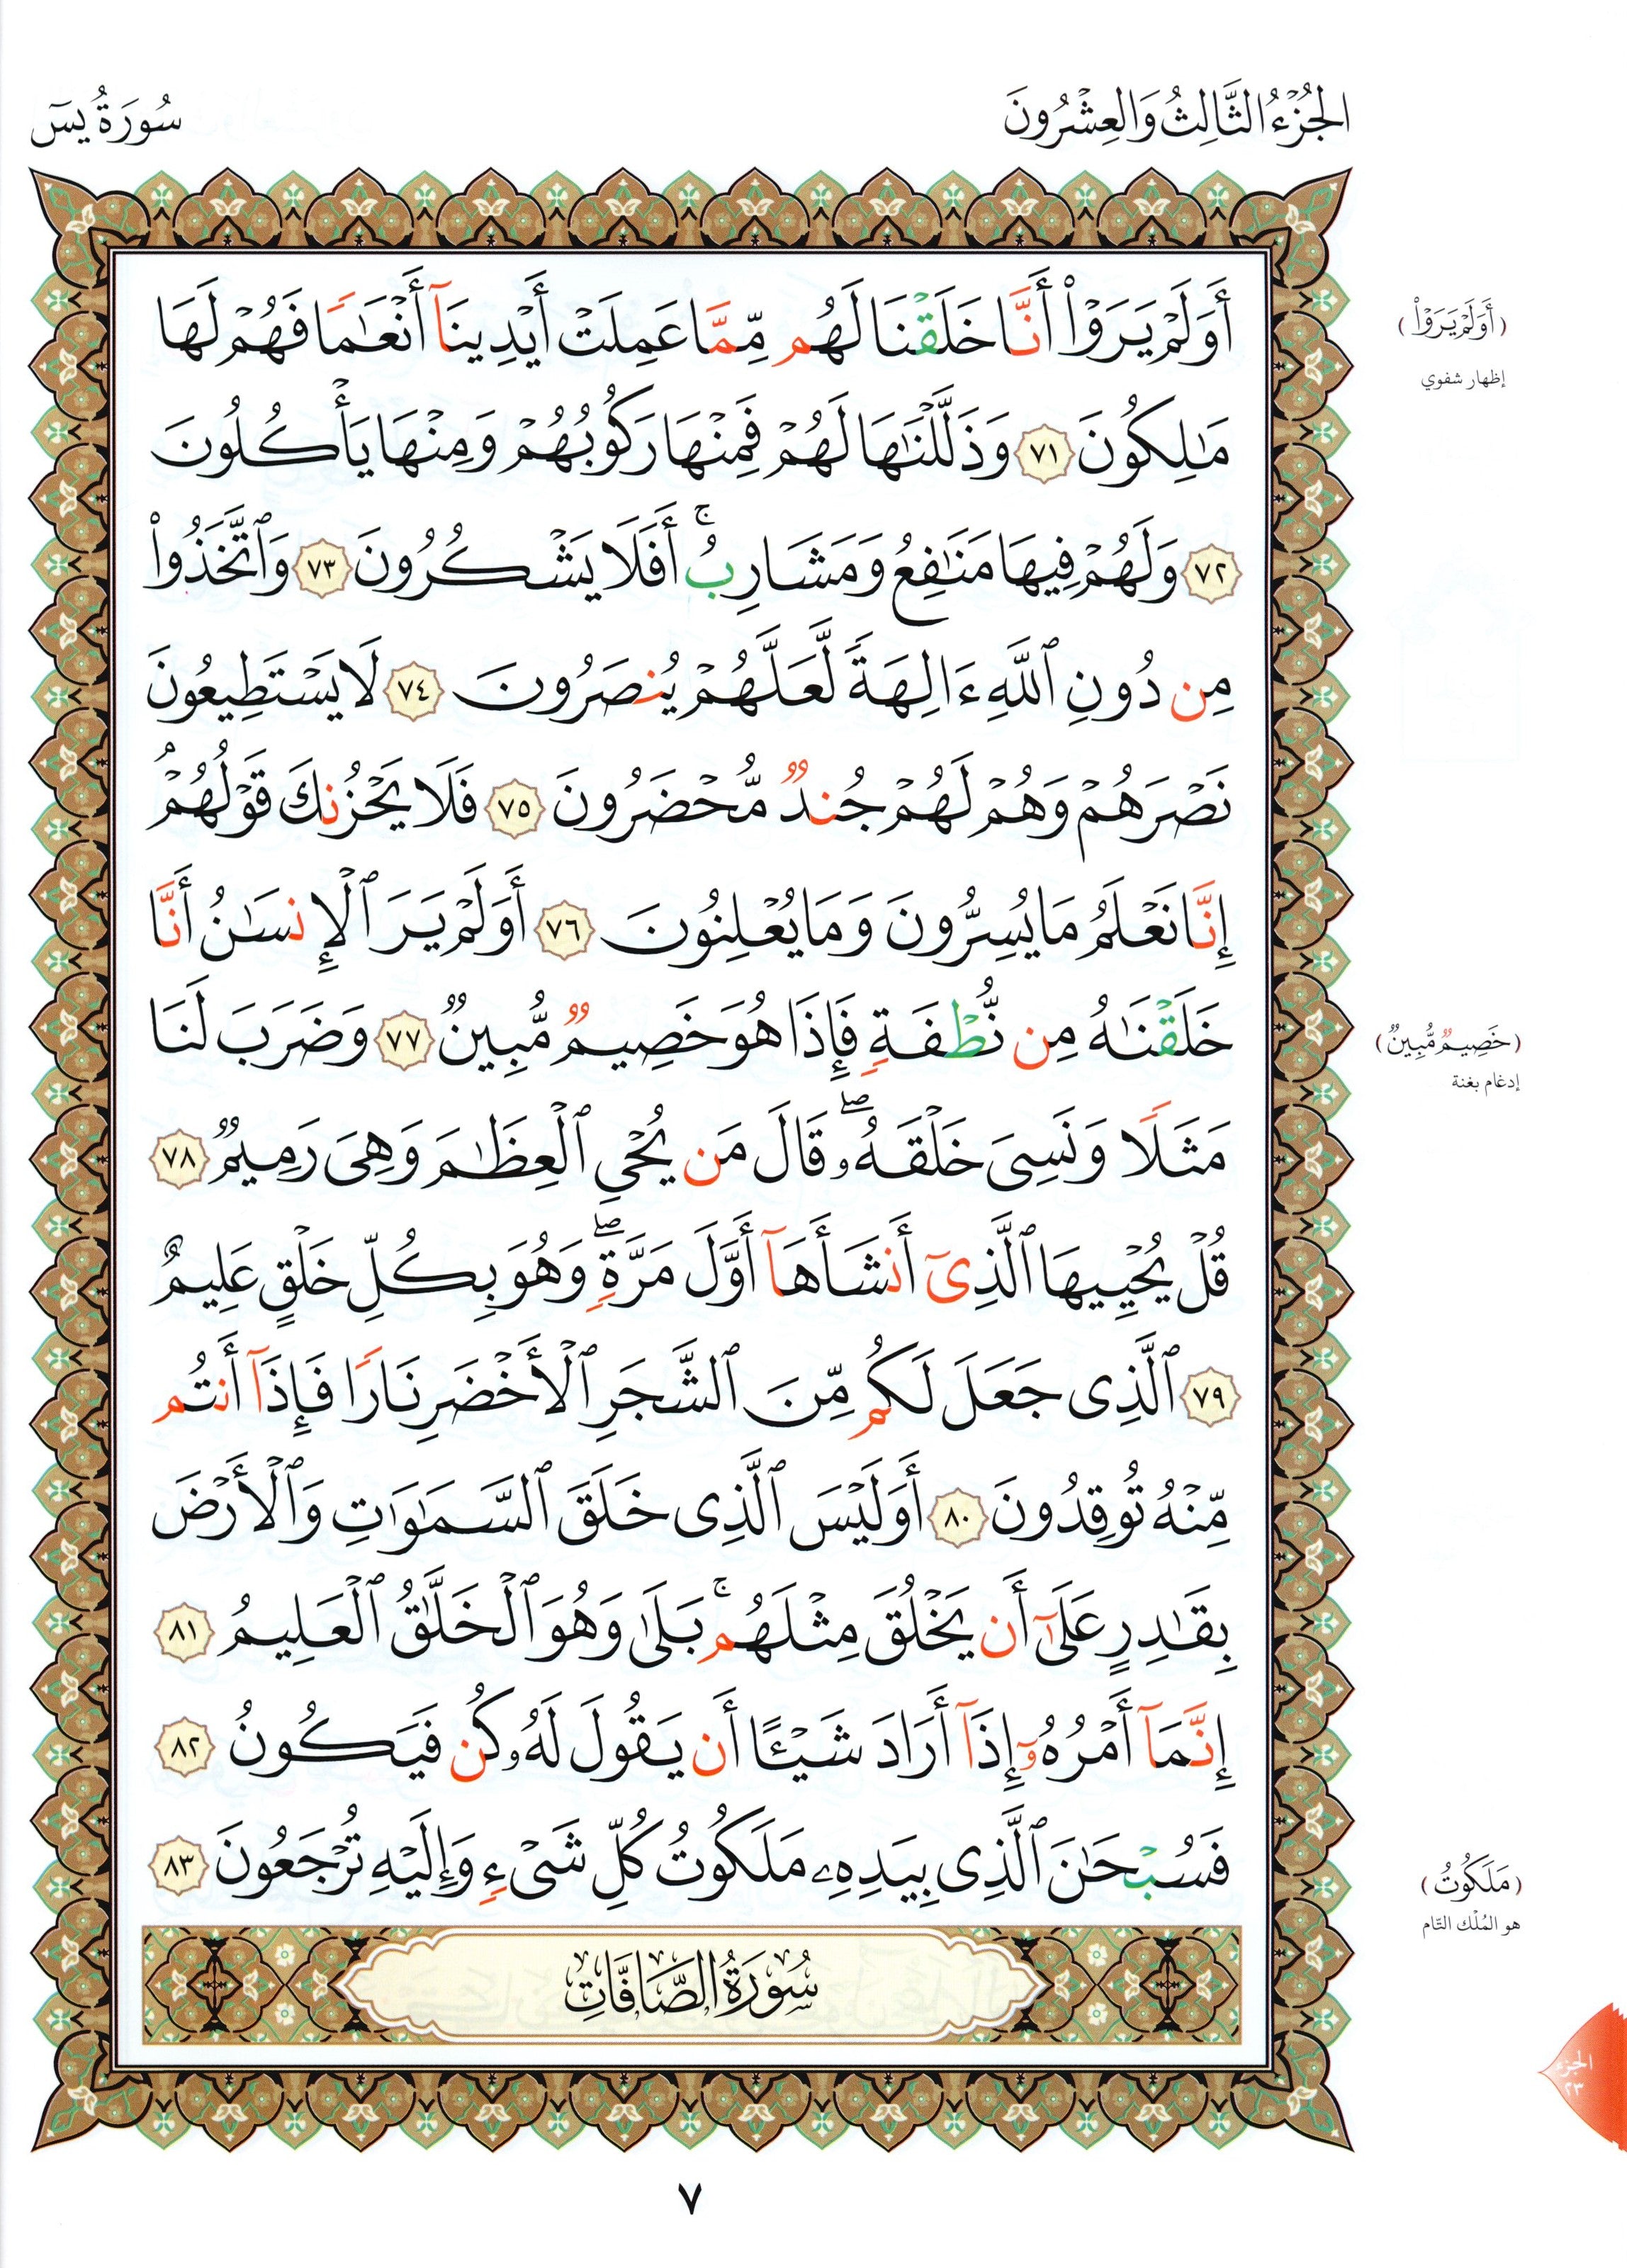 الجُزْءُ الثَّالِثُ وَالعِشْرُونَ
سُورَةُ يسٓ
أَوَلَمْ يَرَوْا۟ أَنَّا خَلَقْنَا لَهُم مِّمَّا عَمِلَتْ أَيْدِينَآ أَنْعَـٰمًا فَهُمْ لَهَا
مَـٰلِكُونَ ٧١ وَذَلَّلْنَـٰهَا لَهُمْ فَمِنْهَا رَكُوبُهُمْ وَمِنْهَا يَأْكُلُونَ
٧٢ وَلَهُمْ فِيهَا مَنَـٰفِعُ وَمَشَارِبُ ۚ أَفَلَا يَشْكُرُونَ ٧٣ وَٱتَّخَذُوا۟
مِن دُونِ ٱللَّهِ ءَالِهَةً لَّعَلَّهُمْ يُنصَرُونَ ٧٤ لَا يَسْتَطِيعُونَ
نَصْرَهُمْ وَهُمْ لَهُمْ جُندٌ مُّحْضَرُونَ ٧٥ فَلَا يَحْزُنكَ قَوْلُهُمْ ۘ
إِنَّا نَعْلَمُ مَا يُسِرُّونَ وَمَا يُعْلِنُونَ ٧٦ أَوَلَمْ يَرَ ٱلْإِنسَـٰنُ أَنَّا
خَلَقْنَـٰهُ مِن نُّطْفَةٍ فَإِذَا هُوَ خَصِيمٌ مُّبِينٌ ٧٧ وَضَرَبَ لَنَا
مَثَلًا وَنَسِىَ خَلْقَهُۥ ۖ قَالَ مَن يُحْىِ ٱلْعِظَـٰمَ وَهِىَ رَمِيمٌ ٧٨
قُلْ يُحْيِيهَا ٱلَّذِىٓ أَنشَأَهَآ أَوَّلَ مَرَّةٍ ۖ وَهُوَ بِكُلِّ خَلْقٍ عَلِيمٌ
٧٩ ٱلَّذِى جَعَلَ لَكُم مِّنَ ٱلشَّجَرِ ٱلْأَخْضَرِ نَارًا فَإِذَآ أَنتُم
مِّنْهُ تُوقِدُونَ ٨٠ أَوَلَيْسَ ٱلَّذِى خَلَقَ ٱلسَّمَـٰوَٰتِ وَٱلْأَرْضَ
بِقَـٰدِرٍ عَلَىٰٓ أَن يَخْلُقَ مِثْلَهُم ۚ بَلَىٰ وَهُوَ ٱلْخَلَّـٰقُ ٱلْعَلِيمُ ٨١
إِنَّمَآ أَمْرُهُۥٓ إِذَآ أَرَادَ شَيْـًٔا أَن يَقُولَ لَهُۥ كُن فَيَكُونُ ٨٢
فَسُبْحَـٰنَ ٱلَّذِى بِيَدِهِۦ مَلَكُوتُ كُلِّ شَىْءٍ وَإِلَيْهِ تُرْجَعُونَ ٨٣
سُورَةُ الصَّافَّاتِ
(أَوَلَمْ يَرَوْا۟)
إظهار شفوي
(خَصِيمٌ مُّبِينٌ)
إدغام بغنة
(مَلَكُوتُ)
هو المُلْك التّام
الجزء
٢٣
٧